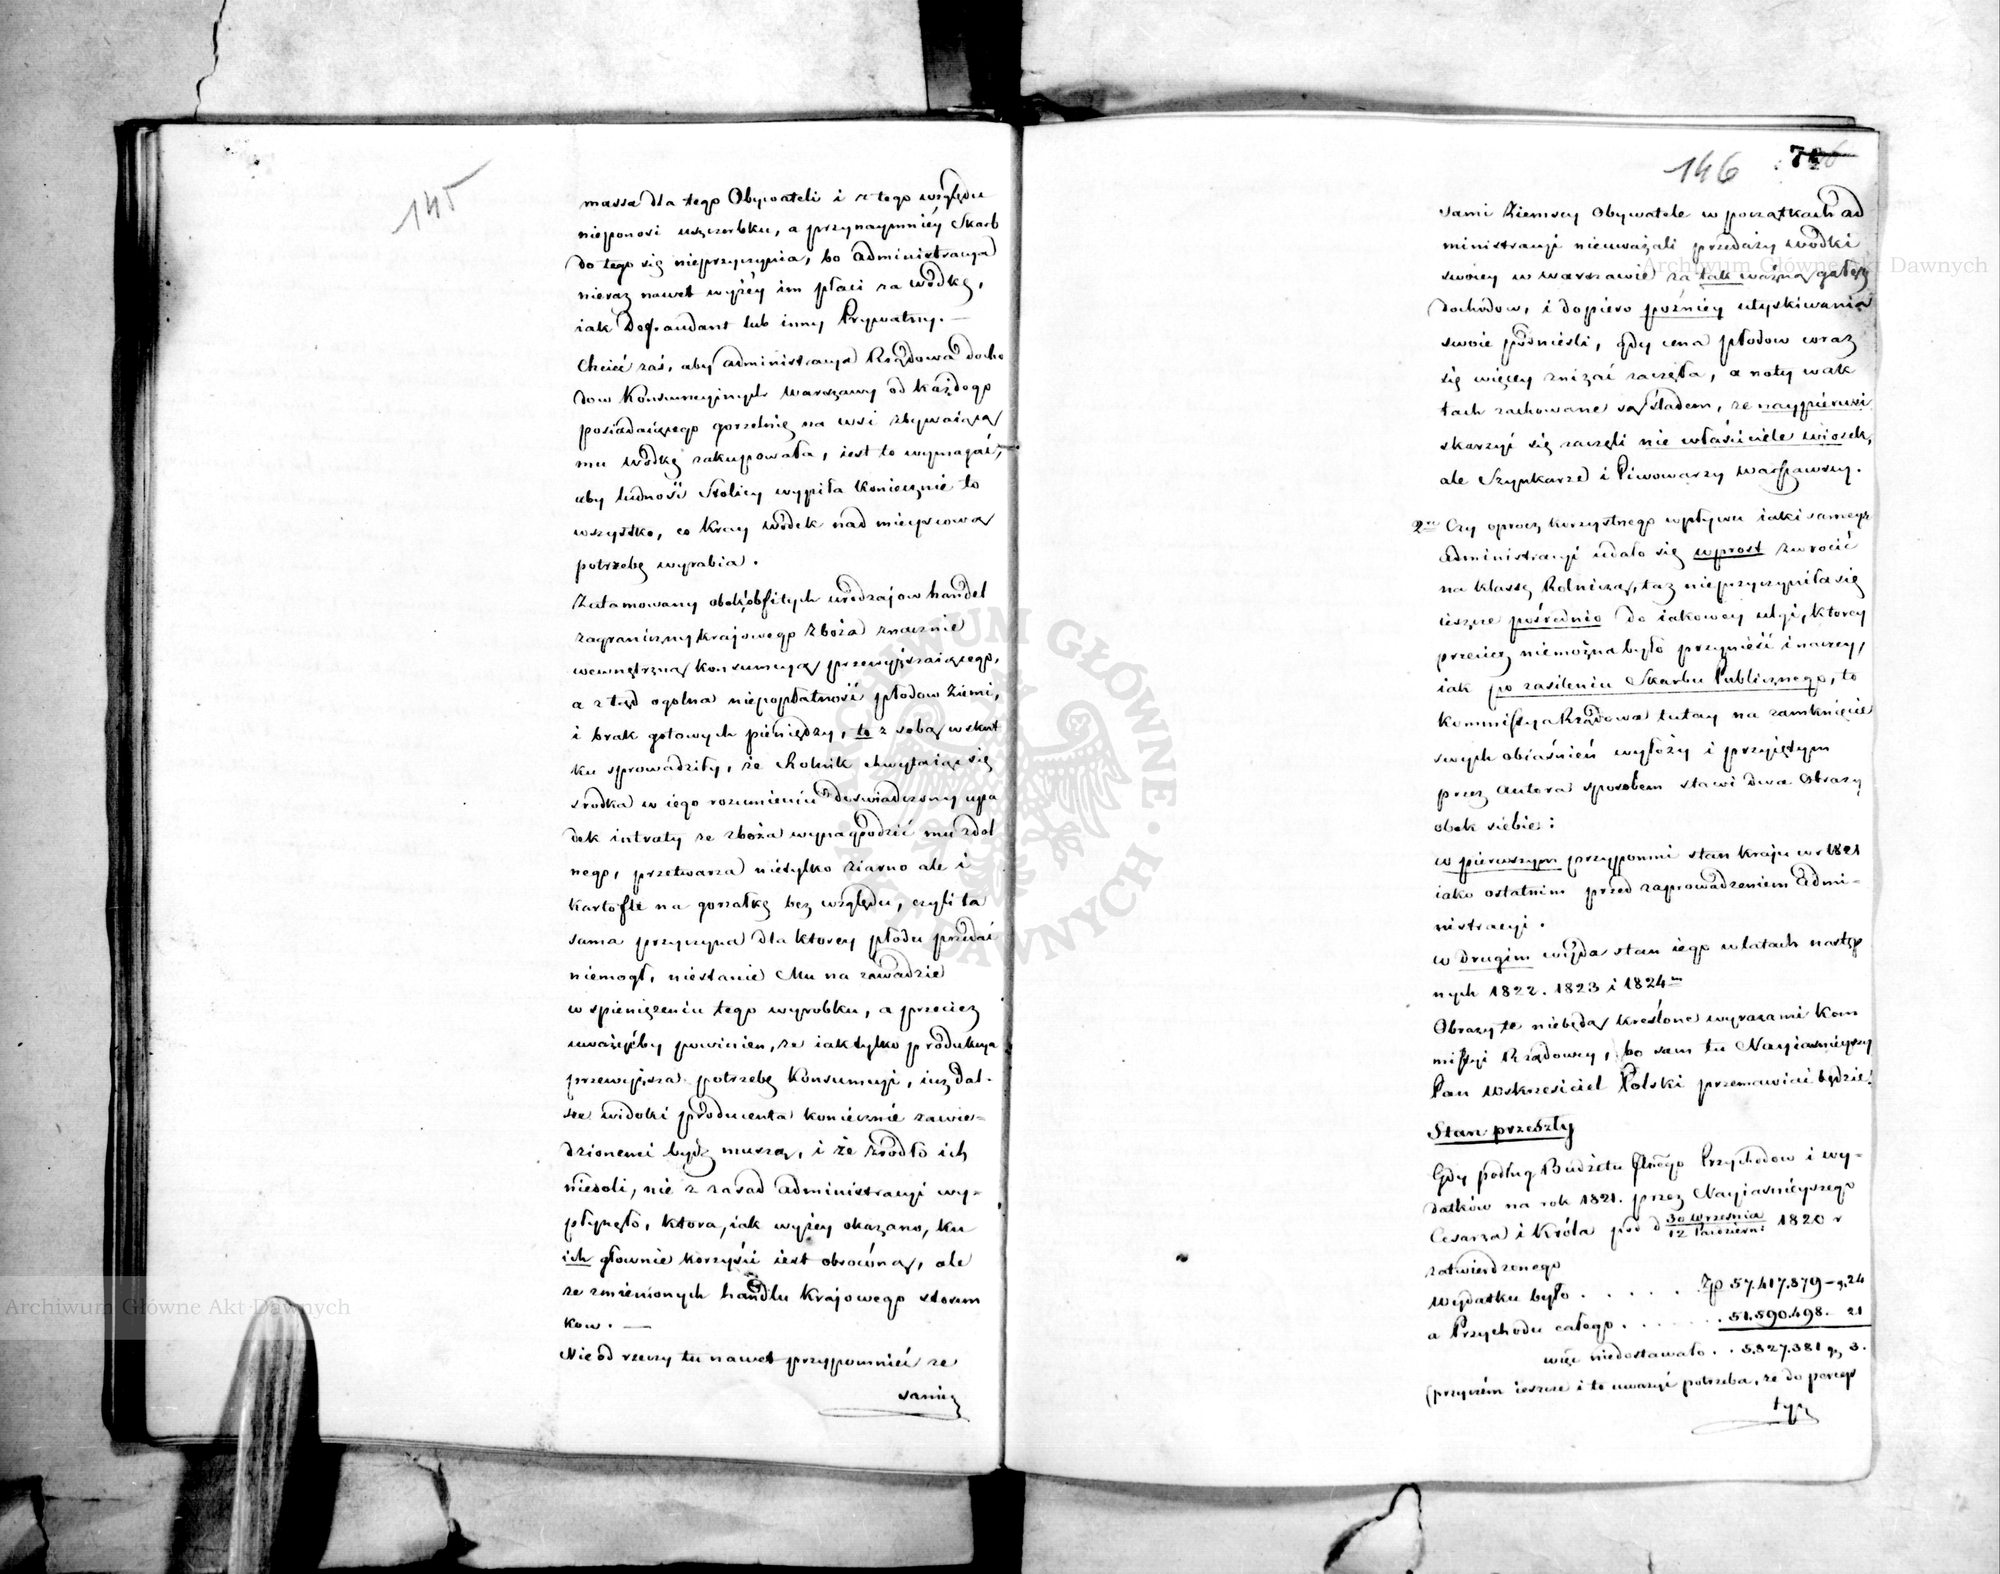 145
massa dla tego Obywateli i z tego względu
nieponosi uszczerbku, a przynaymniéy Skarb
do tego się nieprzyczynia, bo administracya
nieraz nawet wyżéy im płaci za wódkę,
iak Defraudant lub inny Prywatny. —
Chcieć zaś, aby administracya Rządowa docho
dow Konsumcyjnych Warszawy od każdego
posiadaiącego gorzelnię na wsi zbywaiącą
mu wódkę zakupowała, iest to wymagać,
aby ludność Stolicy wypiła koniecznie to
wszystko, co kray wódek nad mieyscową
potrzebę wyrabia.
Zatamowany obok obfitych urodzajow handel
zagraniczny krajowego zboża znacznie
wewnętrzną konsumcyą przewyższaiącego,
a ztąd ogolna niepopłatność płodow ziemi,
i brak gotowych pieniędzy, to z sobą w skut
ku sprowadziły, że Rolnik chwytaiąc się
srodka w iego rozumieniu doswiadczony upa
dek intraty ze zboża wynagrodzić mu zdol
nego, przetwarza nietylko ziarno ale i
kartofle na gorzałkę bez względu, czyli ta
sama przyczyna dla ktorey płodu przedać
niemogł, niestanie Mu na zawadzie
w spieniężeniu tego wyrobku, a przecież
uważyćby powinien, że iak tylko produkcya
przewyższa potrzebę Konsumcyi, iuż dal-
sze widoki producenta koniecznie zawie-
dzionemi bydź muszą, i że źrodło ich
niedoli, nie z zasad administracyi wy-
płynęło, ktora, iak wyżey okazano, ku
ich głownie korzyści iest obrocóną, ale
ze zmienionych handlu krajowego stosun
kow. —
Nie od rzeczy tu nawet przypomnieć że
sami
146
sami Ziemscy Obywatele w początkach ad
ministracyi nieuważali przedaży wodki
swoiey w Warszawie za tak ważną gałęź
dochodow, i dopiero poźniey utyskiwania
swoie podnieśli, gdy cena płodow coraz
się więcey zniżać zaczęła, a noty w ak
tach zachowane są śladem, że naypierwsi
skarzyć się zaczęli nie właściciele wiosek,
ale Szynkarze i Piwowarzy Warszawscy.
2re Czy oprocz korzystnego wpływu iaki samey
administracyi udało się wprost zwrocić
na klassę Rolniczą, taż nieprzyczyniła się
ieszcze pośrednio do iakowey ulgi, ktorey
przecież niemożna było przynieść inaczey,
iak po zasileniu Skarbu Publicznego, to
Kommissya Rządowa tutay na zamknięcie
swych obiaśnień wyłoży i przyiętym
przez autora sposobem stawi dwa Obrazy
obok siebie:
w pierwszym przypomni stan kraju w r 1821
iako ostatnim przed zaprowadzeniem Admi-
nistracyi.
w drugim wyda stan iego w latach następ
nych 1822. 1823 i 1824m
Obrazy te niebędą kreślone wyrazami Kom
missyi Rządowey, bo sam tu Nayiaśnieyszy
Pan Wskrzesiciel Polski przemawiać będzie!
Stan przeszły
Gdy podług Budżetu Przychodow i wy-
datków na rok 1821. przez Nayiaśnieyszego
Cesarza i Króla pod d 30 Września / 12 Październ: 1820 r
zatwierdzonego
wydatku było . . . . . . Zp 57.417.879 - g. 24
a Przychodu całego . . . . . . . 51.590.498. 21
więc niedostawało . . 5.827.381 g 3.
(przyczém ieszcze i to uważyć potrzeba, że do
tych
Archiwum Główne Akt Dawnych
Archiwum Główne Akt Dawnych
ARCHIWUM GŁÓWNE · AKT DAWNYCH ·